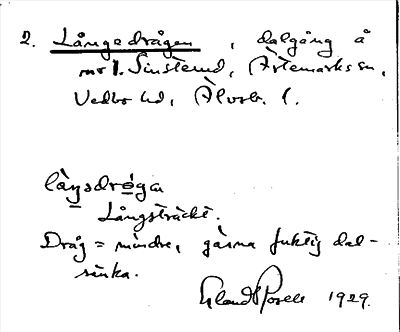 2. Långedrågen, dalgång å
nr 1. Sinsterud, Ärtemarks sn,
Vedbo hd, Älvsb. l.
làŋsdrǫ̀gan
Långsträckt.
Dråg = mindre, gärna fuktig dal-
sänka.
Erland Rosell 1929.